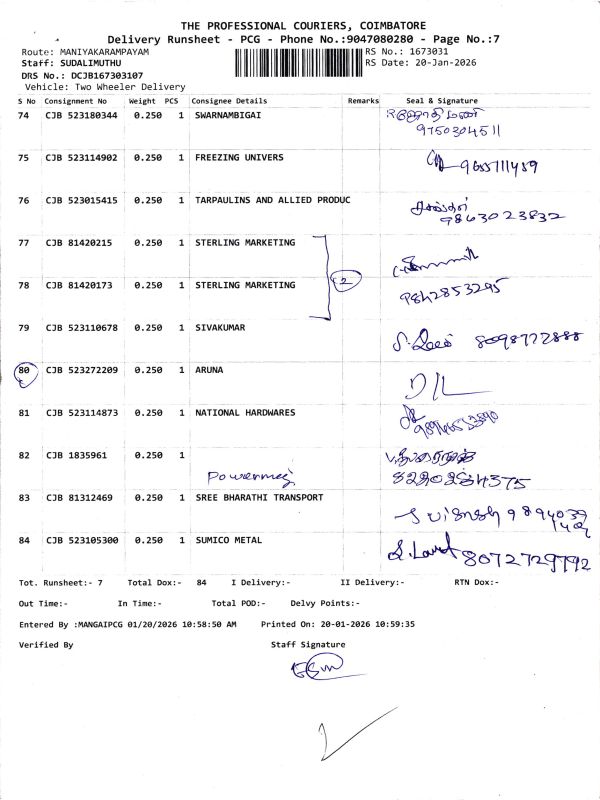 THE PROFESSIONAL COURIERS, COIMBATORE
Delivery Runsheet - PCG - Phone No.:9047080280 - Page No.:7
Route: MANIYAKARAMPAYAM RS No.: 1673031
Staff: SUDALIMUTHU RS Date: 20-Jan-2026
DRS No.: DCJB167303107
Vehicle: Two Wheeler Delivery
S No Consignment No Weight PCS Consignee Details Remarks Seal & Signature
74 CJB 523180344 0.250 1 SWARNAMBIGAI
9750304511
75 CJB 523114902 0.250 1 FREEZING UNIVERS 9655711459
76 CJB 523015415 0.250 1 TARPAULINS AND ALLIED PRODUC
9863023832
77 CJB 81420215 0.250 1 STERLING MARKETING
2
78 CJB 81420173 0.250 1 STERLING MARKETING 9842853295
79 CJB 523110678 0.250 1 SIVAKUMAR 8098777888
80 CJB 523272209 0.250 1 ARUNA D/L
81 CJB 523114873 0.250 1 NATIONAL HARDWARES
82 CJB 1835961 0.250 1
83 CJB 81312469 0.250 1 SREE BHARATHI TRANSPORT
84 CJB 523105300 0.250 1 SUMICO METAL 8072729792
Tot. Runsheet:- 7 Total Dox:- 84 I Delivery:- II Delivery:- RTN Dox:-
Out Time:- In Time:- Total POD:- Delvy Points:-
Entered By :MANGAIPCG 01/20/2026 10:58:50 AM Printed On: 20-01-2026 10:59:35
Verified By Staff Signature